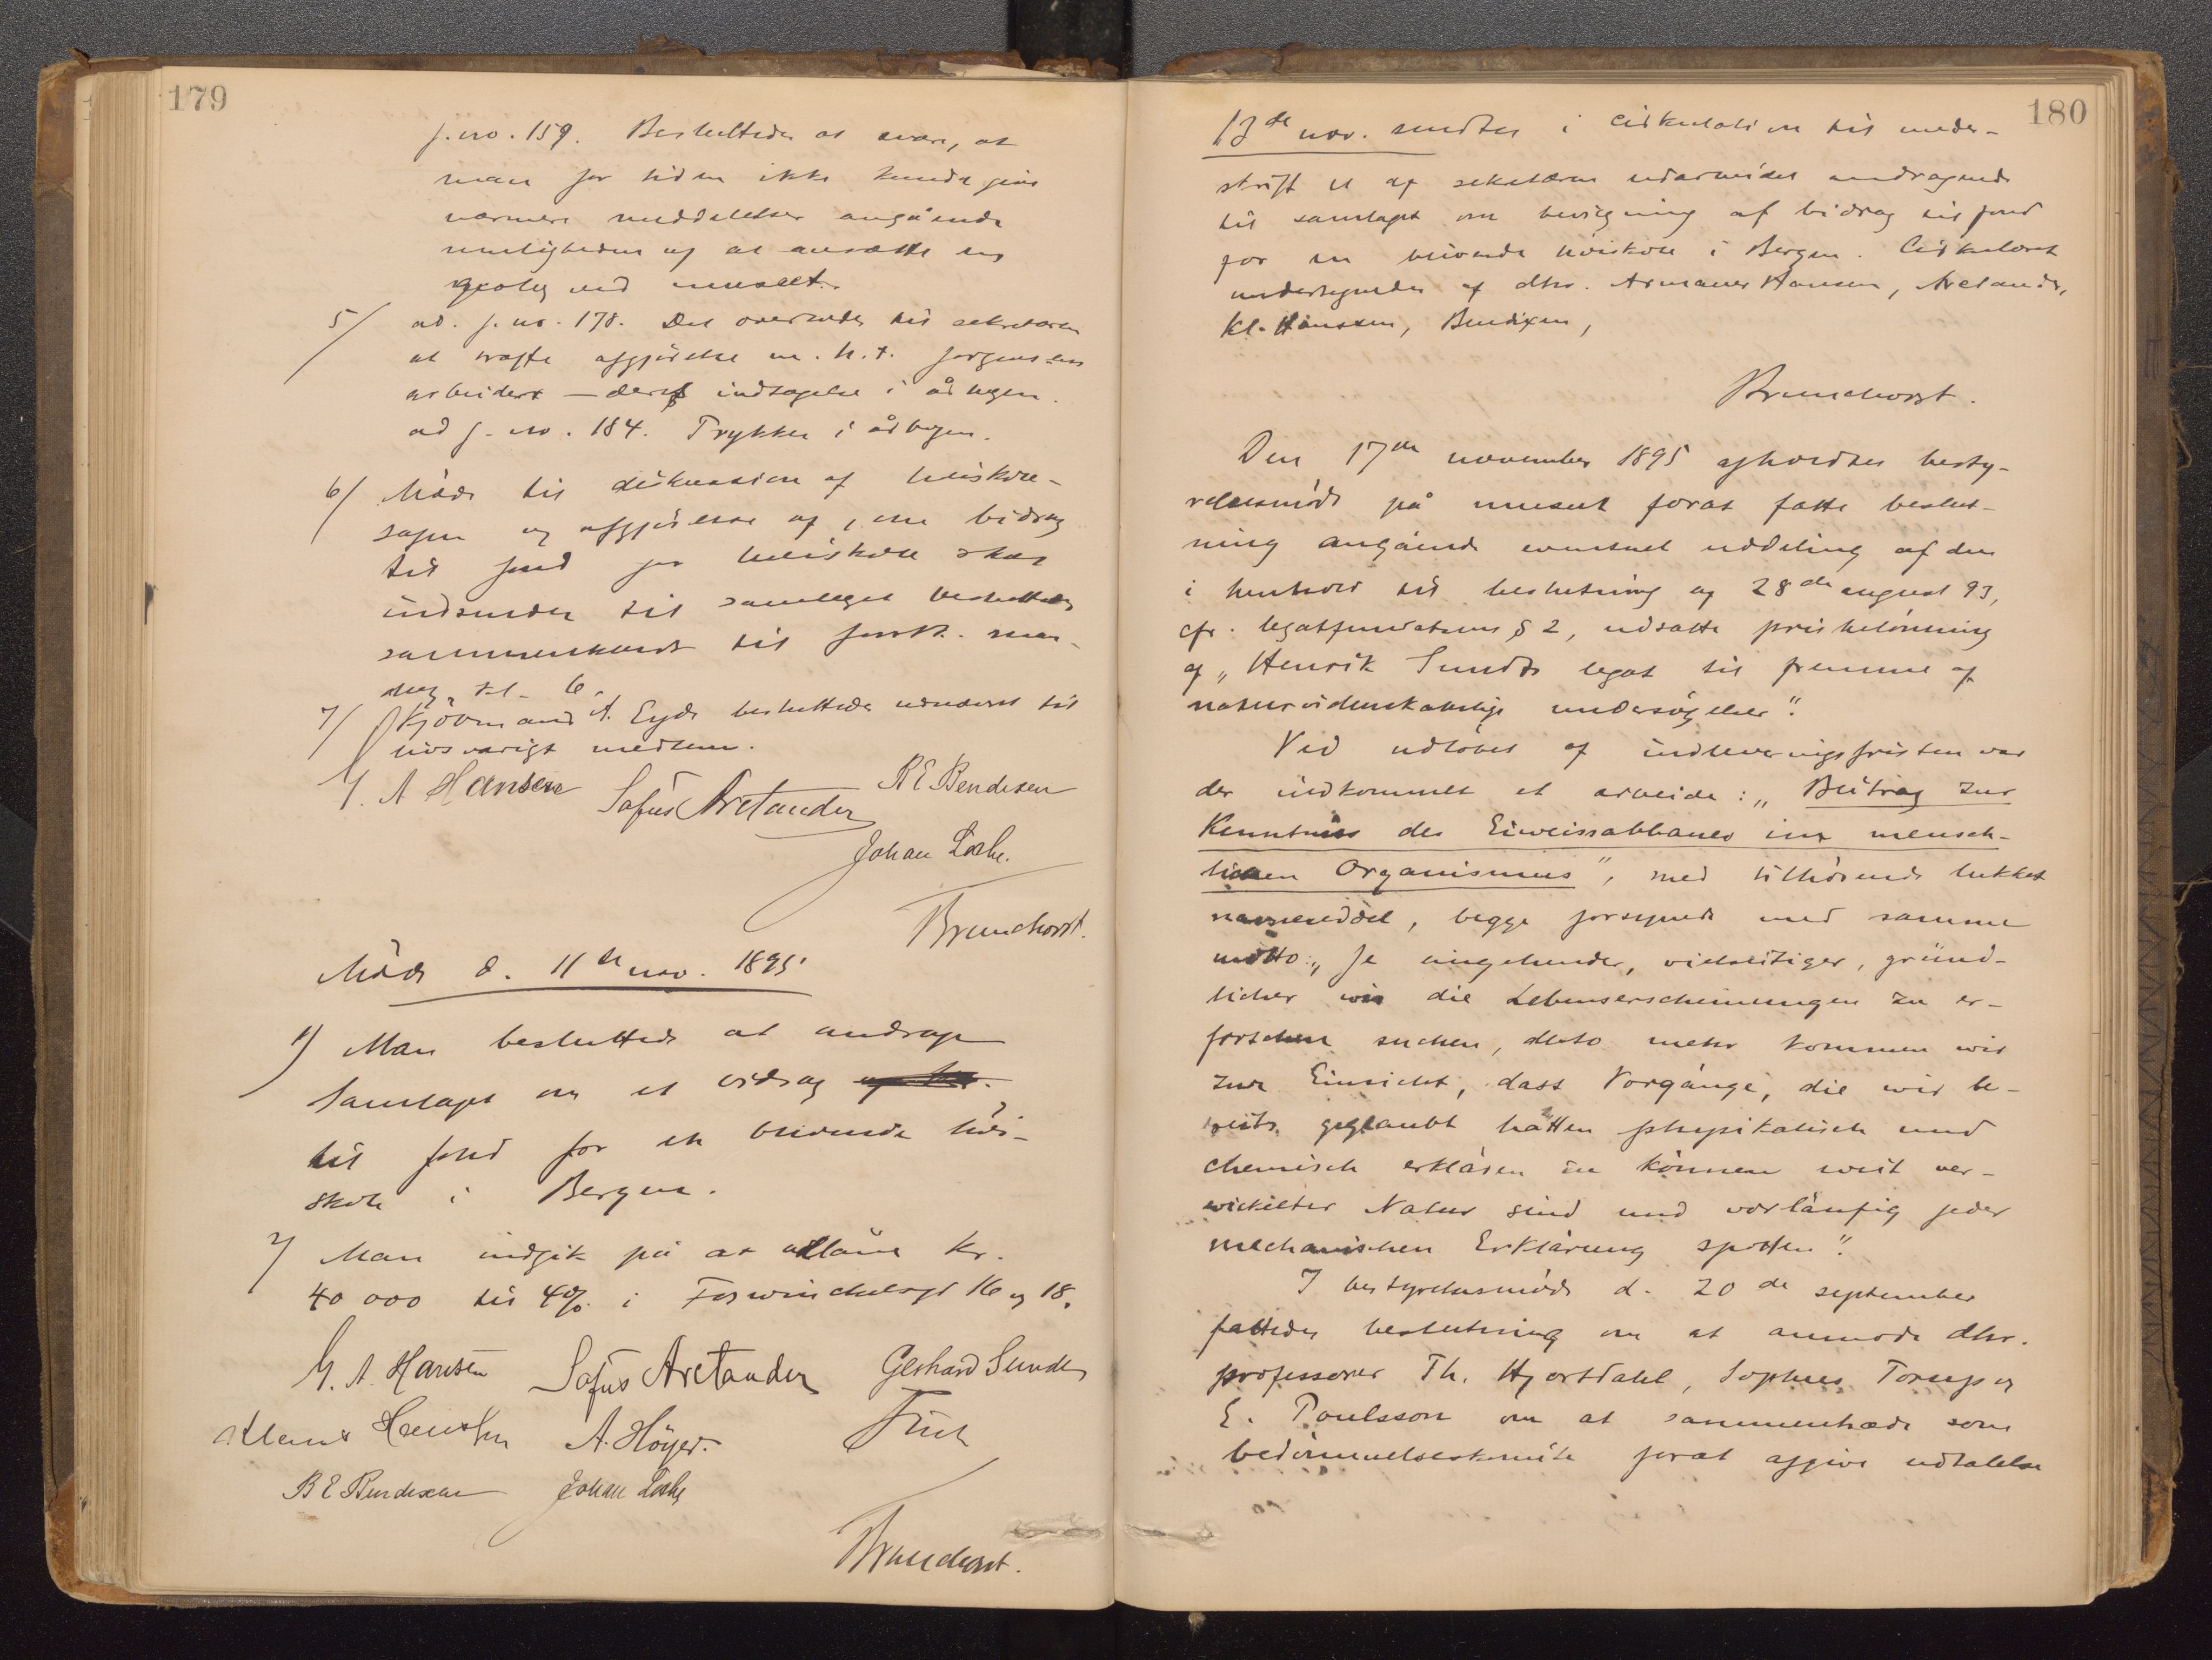 179
j. no. 159. Besluttedes at svare, at
man for tiden ikke kunde give
nærmere meddelelser angående
muligheden af at ansætte en
geolog ved museet.
5/ ad. j. no. 178. Det overlodes til sekretæren
at træffe afgjørelse m. h. t. Jørgensens
arbeider — deres indtagelse i årbogen.
ad j. no. 184. Trykkes i årbogen.
6/ Møde til diskussion af høiskole-
sagen og afgjørelse af, om bidrag
til fond for høiskole skal
indsendes til samlaget besluttedes
sammenkaldt til førstk. man-
dag kl. 6.
7/ Kjøbmand A. Eyde besluttedes udnævnt til
livsvarigt medlem.
G. A Hansen Sofus Aretander B E Bendixen
Johan Lothe.
Brunchorst.
Møde d. 11te nov. 1895
1) Man besluttede at andrage
Samlaget om et bidrag
til fond for en blivende høi-
skole i Bergen.
2/ Man indgik på at udlåne kr.
40 000 til 4% i Foswinckelsgt 16 og 18.
G. A. Hansen Sofus Aretander Gerhard Sundt
Klaus Hanssen A. Höyer.
B E Bendixen Johan Lothe
Brunchorst.
180
13de nov. sendtes i cirkulation til under-
skrift et af sekretæren udarbeidet andragende
til samlaget om bevilgning af bidrag til fond
for en blivende höiskole i Bergen. Cirkulæret
undertegnedes af dhr. Armauer Hansen, Aretander,
Kl. Hanssen, Bendixen,
Brunchorst.
Den 17de november 1895 afholdtes besty-
relsesmöde på museet forat fatte beslut-
ning angående eventuel uddeling af den
i henhold til beslutning af 28de august 93,
cfr. legatfundatsens § 2, udsatte prisbelønning
af „Henrik Sundts legat til fremme af
naturvidenskabelige undersögelser".
Ved udlöbet af indleveringsfristen var
der indkommet et arbeide: „Beitrag zur
Kenntniss des Eiweissabbaues im mensch-
lichen Organismus", med tilhörende lukket
navneseddel, begge forsynede med samme
motto: „Je eingehender, vielseitiger, gründ-
licher wir die Lebenserscheinungen zu er-
forschen suchen, desto mehr kommen wir
zur Einsicht, dass Vorgänge, die wir be-
reits geglaubt hätten physikalisch und
chemisch erklären zu können weit ver-
wickelter Natur sind und vorläufig jeder
mechanischen Erklärung spotten".
I bestyrelsesmöde d. 20de september
fattedes beslutning om at anmode dhr.
professorer Th. Hjortdahl, Sophus Torup og
E. Poulsson om at sammentræde som
bedömmelseskomite forat afgive udtalelse